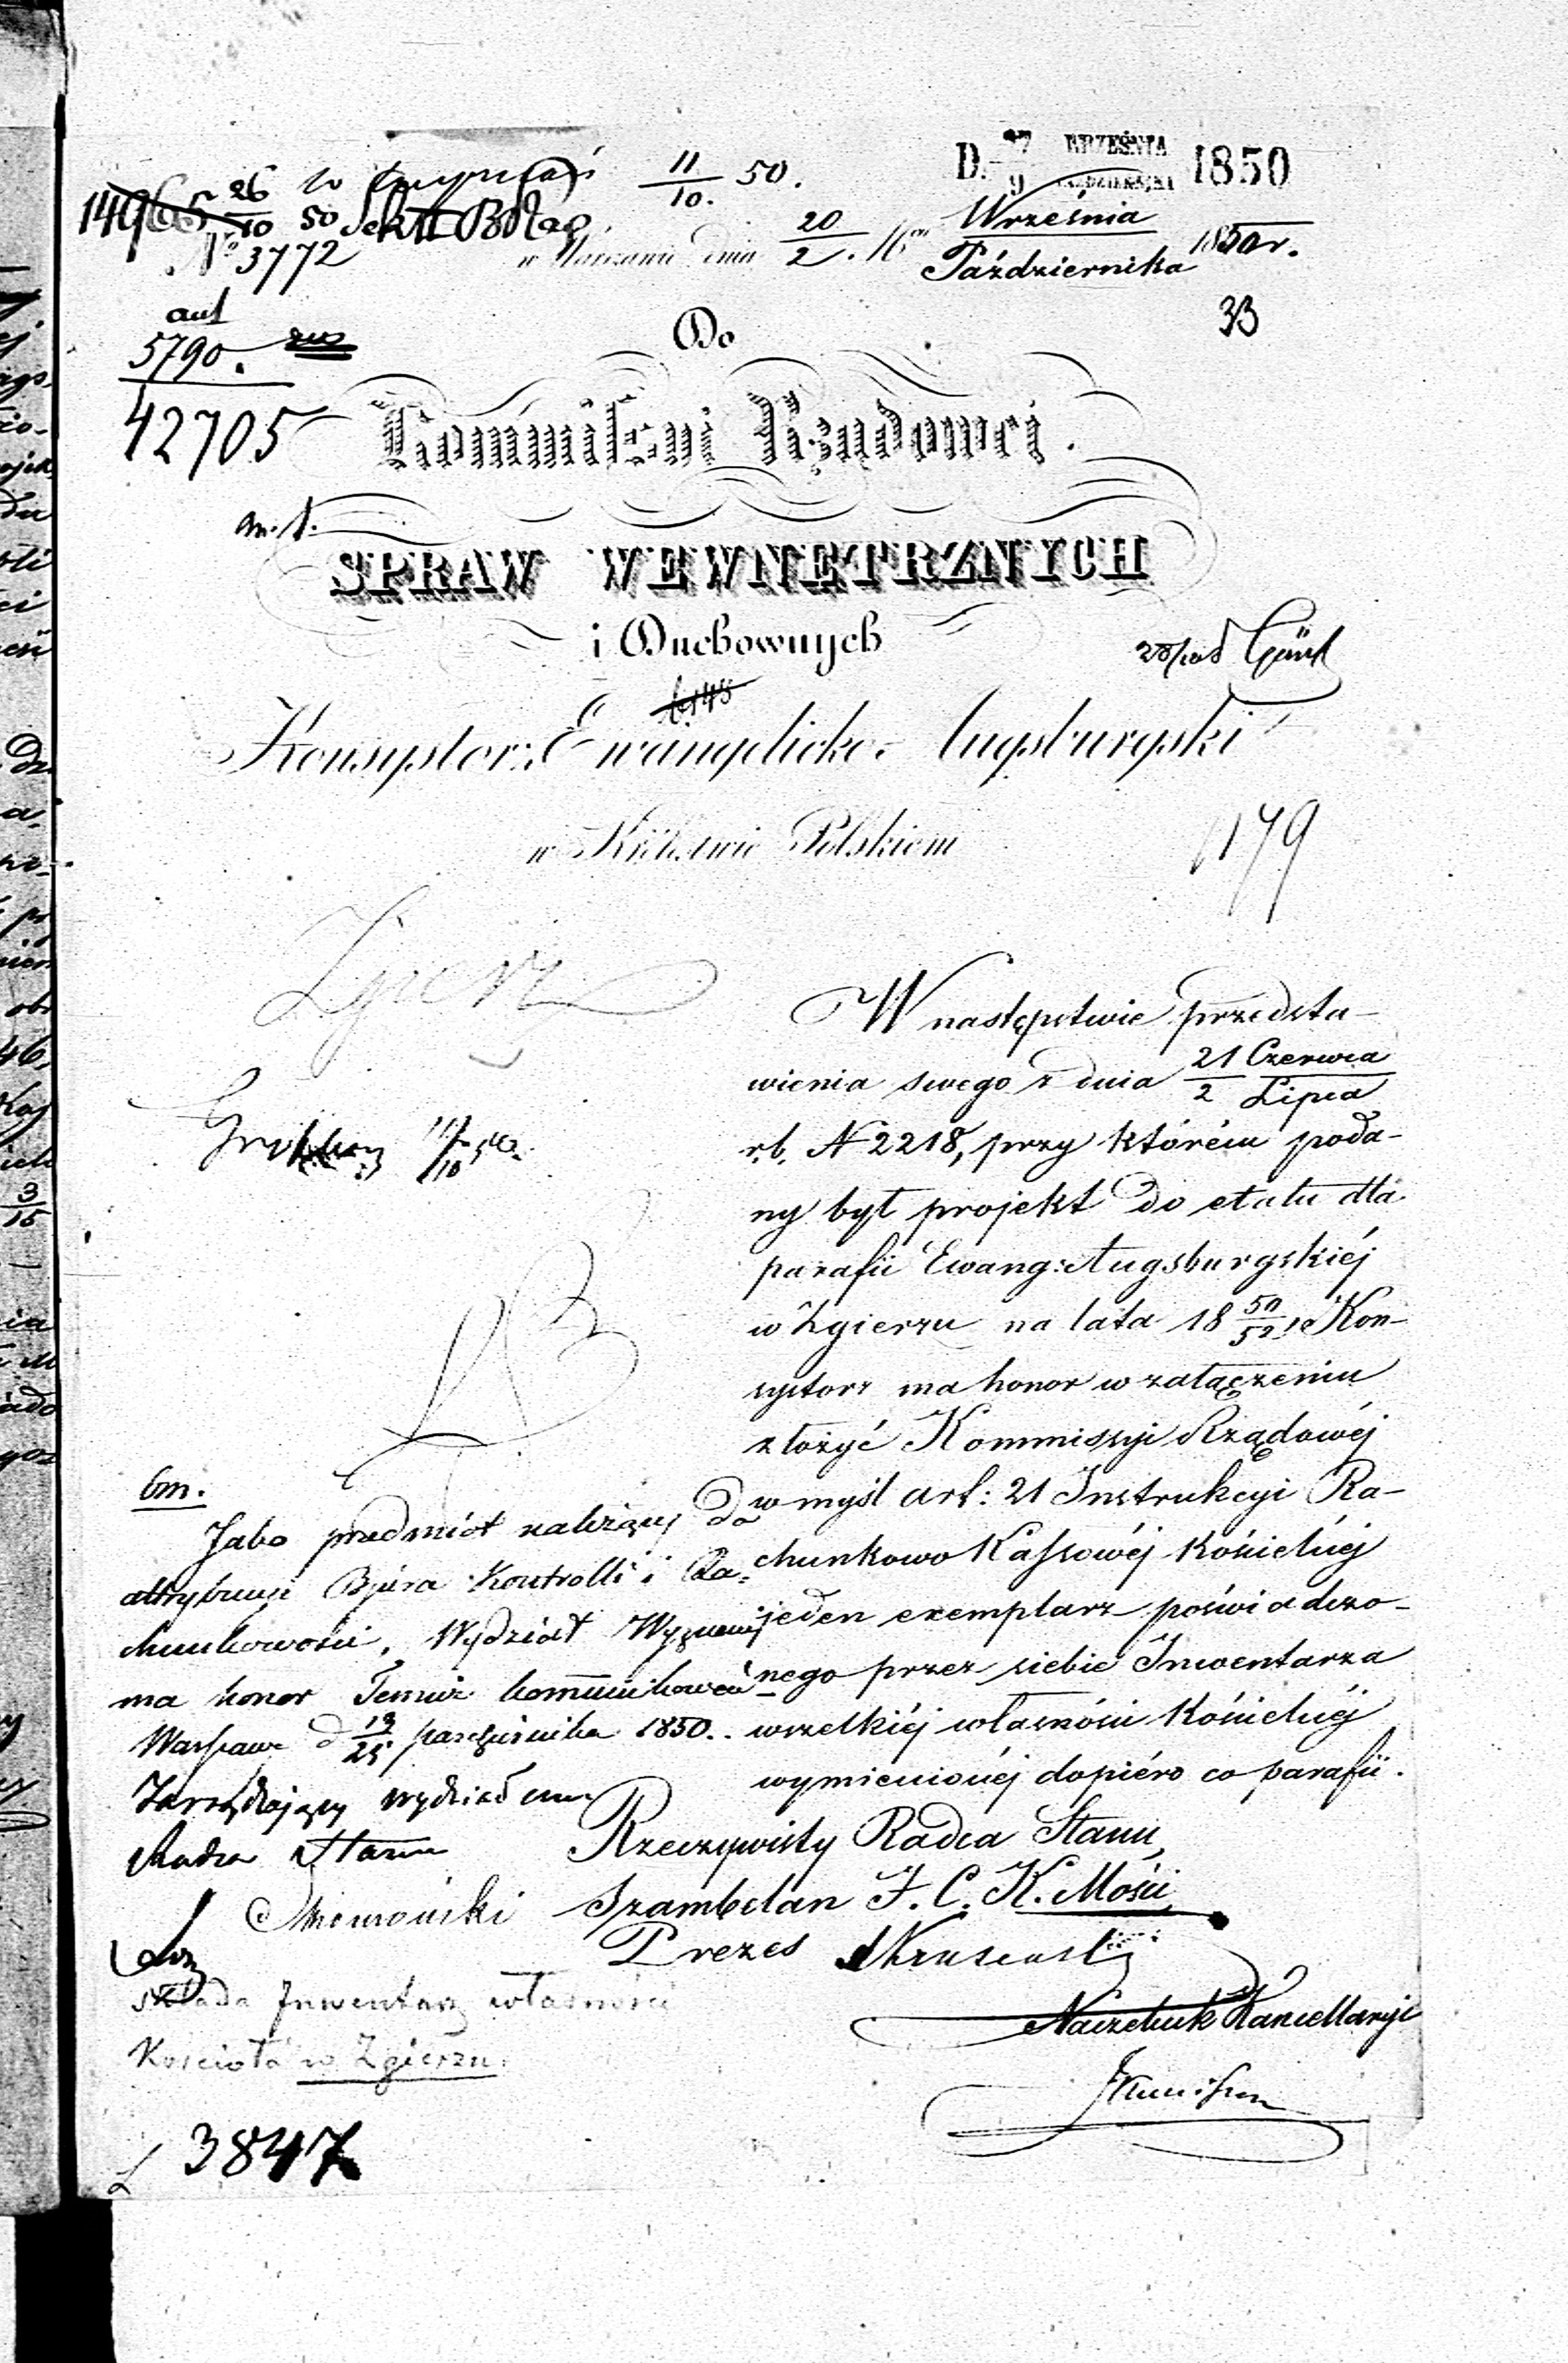 D. 27 WRZEŚNIA 1850
9 PAŹDZIERNIKA
11/10. 50.
14965 26/10 50 Sekt II
No 3772
w Warszawie dnia 20/2. Września/Października 1850 r.
33
5790.
42705
Do
Kommissyi Rządowej
m. t.
SPRAW WEWNĘTRZNYCH
i Duchownych
Konsystorz Ewangelicko-Augsburgski
w Królestwie Polskiem
179
Zgierz
W następstwie przedsta-
wienia swego z dnia 21 Czerwca/2 Lipca
r.b. N 2218, przy którém poda-
ny był projekt do etatu dla
parafii Ewang: Augsburgskiéj
w Zgierzu na lata 18 50/52, Kon-
systorz ma honor w załączeniu
złożyć Kommissyi Rządowéj
w myśl art: 21 Instrukcyi Ra-
chunkowo Kassowéj Kościelnéj
jeden exemplarz poświadczo-
nego przez siebie Inwentarza
wszelkiéj własności Kościelnéj
wymienionéj dopiéro co parafii.
Rzeczywisty Radca Stanu,
Szambelan J. C. K. Mości
Prezes
Naczelnik Kancellaryi
bm.
Jako przedmiot należący do
attrybucyi Bjóra Kontrolli i Ra-
chunkowości, Wydział Wyznań
ma honor temuż kommunikować
Warszawa d 13/25 października 1850.
Zarządzający wydziałem
Radca Stanu
składa Inwentarz własności
Kościoła w Zgierzu
3847